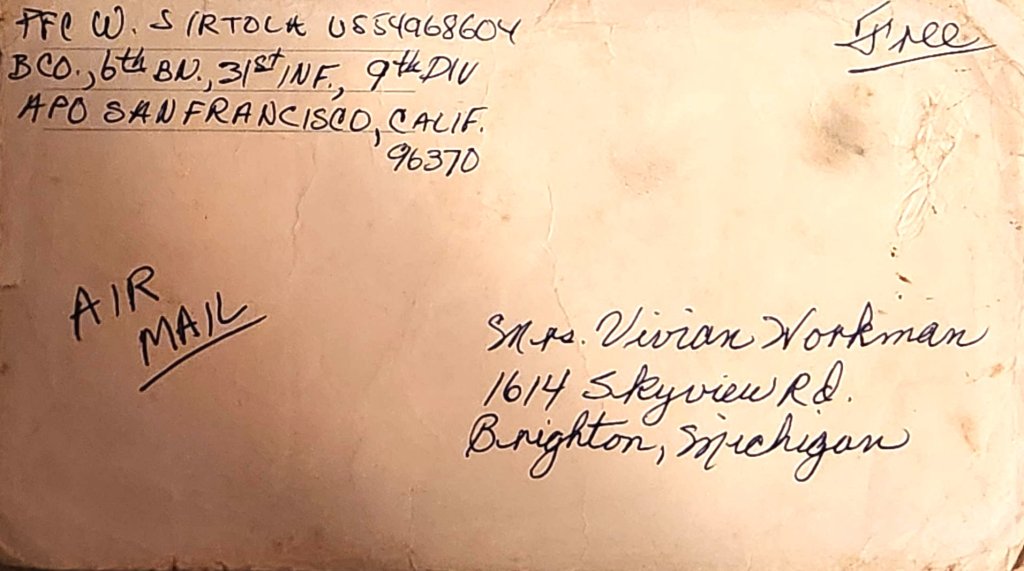 PFC W. SIRTOLA US54968604
Free
B CO., 6th BN., 31st INF., 9th DIV
APO SAN FRANCISCO, CALIF.
96370
AIR
MAIL
Mrs. Vivian Workman
1614 Skyview Rd.
Brighton, Michigan